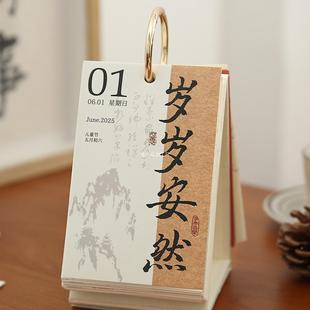 01
06.01 星期日
June.2025
儿童节
五月初六
岁岁安然